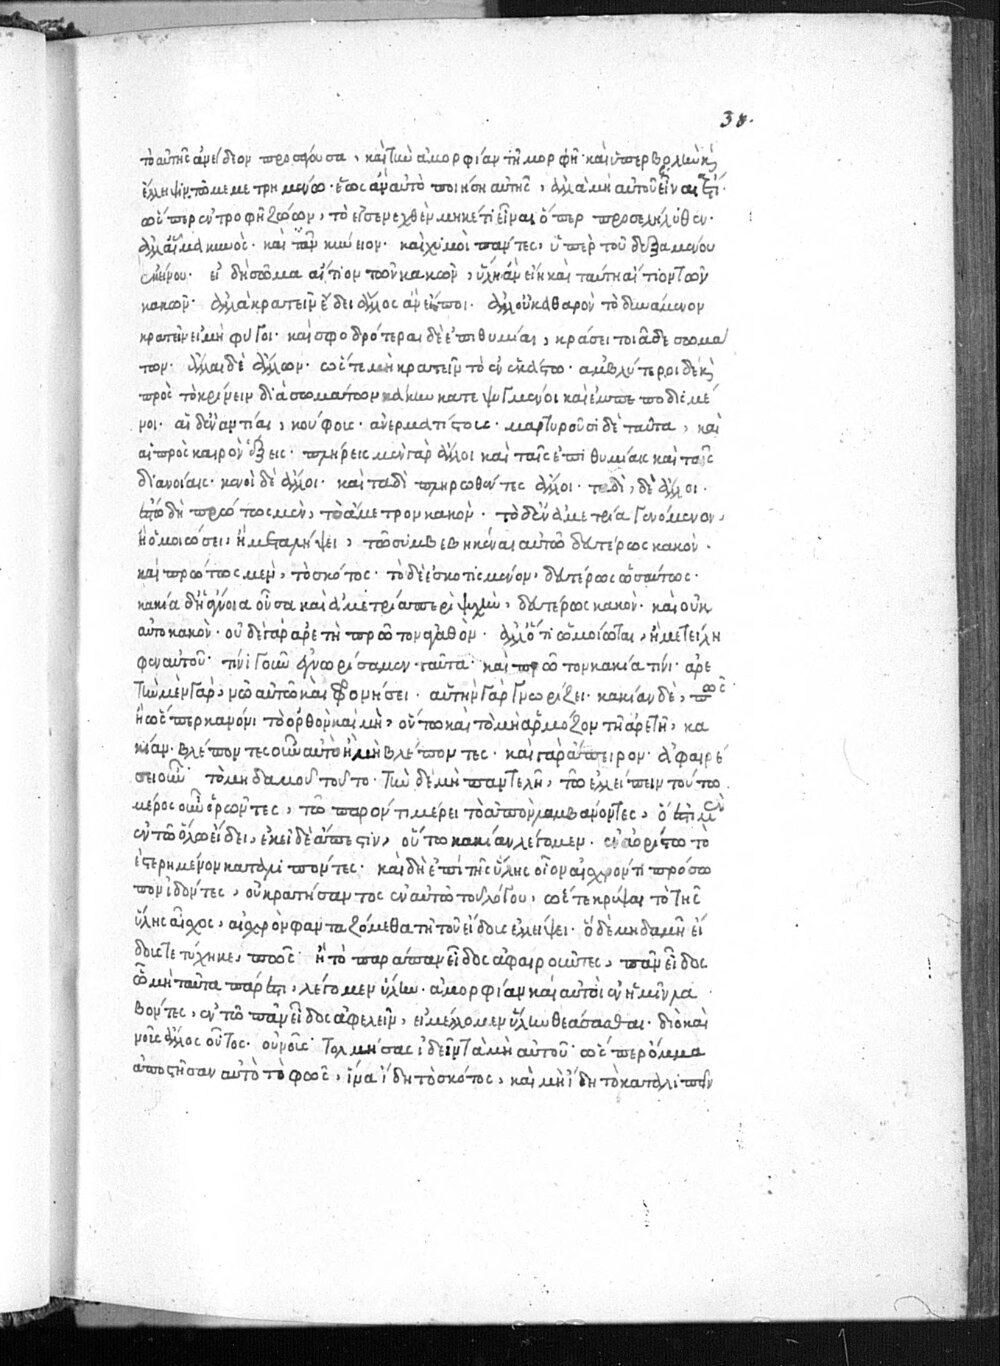 38.
τὸ αὑτῆς ἀνείδεον προσάγουσα, καὶ τὴν ἀμορφίαν τῇ μορφῇ· καὶ ὑπερβολὴν καὶ
ἔλλειψιν τῷ μεμετρημένῳ· ἕως ἂν αὐτὸ ποιήσῃ αὑτῆς, ἀλλὰ μὴ αὐτοῦ εἶναι ἔτι·
ὥσπερ ἐν τροφῇ ζώων, τὸ εἰσενεχθὲν μηκέτι εἶναι ὅπερ προσελήλυθεν·
ἀλλ' αἷμα κυνὸς· καὶ πᾶν κύνειον· καὶ χυμοὶ πάντες, οἵπερ τοῦ δεξαμένου
ἐκείνου· εἰ δὴ σῶμα αἴτιον τῶν κακῶν, ὕλη ἂν εἴη καὶ ταύτῃ αἴτιον τῶν
κακῶν· ἀλλὰ κρατεῖν ἔδει ἄλλος ἂν εἴποι· ἀλλ' οὐ καθαρὸν τὸ δυνάμενον
κρατεῖν εἰ μὴ φύγοι· καὶ σφοδρότεραι δὲ ἐπιθυμίαι, κράσει τοιᾷδε σωμά
των· ἄλλαι δὲ ἄλλων· ὥστε μὴ κρατεῖν τὸ ἐν ἑκάστῳ· ἀμβλύτεροι δὲ καὶ
πρὸς τὸ κρίνειν διὰ σωμάτων κάκην κατεψυγμένοι καὶ ἐμπεποδισμέ
νοι· αἱ δ' ἐναντίαι, κούφοις· ἀνερματίστοις· μαρτυροῦσι δὲ ταῦτα, καὶ
αἱ πρὸς καιρὸν ἕξεις· πλήρεις μὲν γὰρ ἄλλοι καὶ ταῖς ἐπιθυμίαις καὶ ταῖς
διανοίαις· κενοὶ δὲ ἄλλοι· καὶ ταδὶ πληρωθέντες ἄλλοι· ταδὶ, δὲ ἄλλοι·
ἔστω δὴ πρώτως μὲν, τὸ ἄμετρον κακὸν· τὸ δ' ἐν ἀμετρίᾳ γενόμενον,
ἢ ὁμοιώσει, ἢ μεταλήψει, τῷ συμβεβηκέναι αὐτῷ δευτέρως κακὸν·
καὶ πρώτως μὲν, τὸ σκότος· τὸ δὲ ἐσκοτισμένον, δευτέρως ὡσαύτως·
κακία δὴ ἄγνοια οὖσα καὶ ἀμετρία περὶ ψυχὴν, δευτέρως κακὸν· καὶ οὐκ
αὐτοκακὸν· οὐδὲ γὰρ ἀρετὴ πρῶτον ἀγαθὸν· ἀλλ' ὅτι ὡμοίωται, ἢ μετείλη
φεν αὐτοῦ· τίνι γοῦν ἐγνωρίσαμεν ταῦτα· καὶ πρῶτον κακία τίνι· ἀρε
τὴν μὲν γὰρ, νῷ αὐτῷ καὶ φρονήσει· αὑτὴν γὰρ γνωρίζει· κακίαν δὲ, πῶς·
ἢ ὥσπερ κανόνι τὸ ὀρθὸν καὶ μὴ, οὕτω καὶ τὸ μὴ ἁρμόζον τῇ ἀρετῇ, κα
κίαν· βλέποντες οὖν αὐτὸ ἢ μὴ βλέποντες· καὶ γὰρ ἄπειρον· ἀφαιρέ
σει οὖν τὸ μηδαμοῦ τοῦτο· τὴν δὲ μὴ παντελῆ, τῷ ἐλλείπειν τούτῳ
μέρος οὖν ὁρῶντες, τῷ παρόντι μέρει τὸ ἀπὸν λαμβάνοντες, ὅ ἐστι μὲν
ἐν τῷ ὅλῳ εἴδει, ἐκεῖ δὲ ἄπεστιν, οὕτω κακίαν λέγομεν· ἐν ἀορίστῳ τὸ
ἐστερημένον καταλιπόντες· καὶ δὴ ἐπὶ τῆς ὕλης οἷον αἰσχρόν τι πρόσω
πον ἰδόντες, οὐ κρατήσαντος ἐν αὐτῷ τοῦ λόγου, ὥστε κρύψαι τὸ τῆς
ὕλης αἶσχος, αἰσχρὸν φανταζόμεθα τῇ τοῦ εἴδους ἐλλείψει· ὃ δὲ μηδαμῇ εἴ
δους τετύχηκε, πῶς· ἢ τὸ παράπαν εἶδος ἀφαιροῦντες, πᾶν εἶδος
ᾧ μὴ ταῦτα πάρεστι, λέγομεν ὕλην· ἀμορφίαν καὶ αὐτοὶ ἐν ἡμῖν λα
βόντες, ἐν τῷ πᾶν εἶδος ἀφελεῖν, εἰ μέλλομεν ὕλην θεάσασθαι· διὸ καὶ
νοῦς ἄλλος οὗτος· οὐ νοῦς· τολμήσας ἰδεῖν τὰ μὴ αὑτοῦ· ὥσπερ ὄμμα
ἀποστῆσαν αὑτὸ τὸ φῶς, ἵνα ἴδῃ τὸ σκότος, καὶ μὴ ἴδῃ τὸ καταλιπεῖν